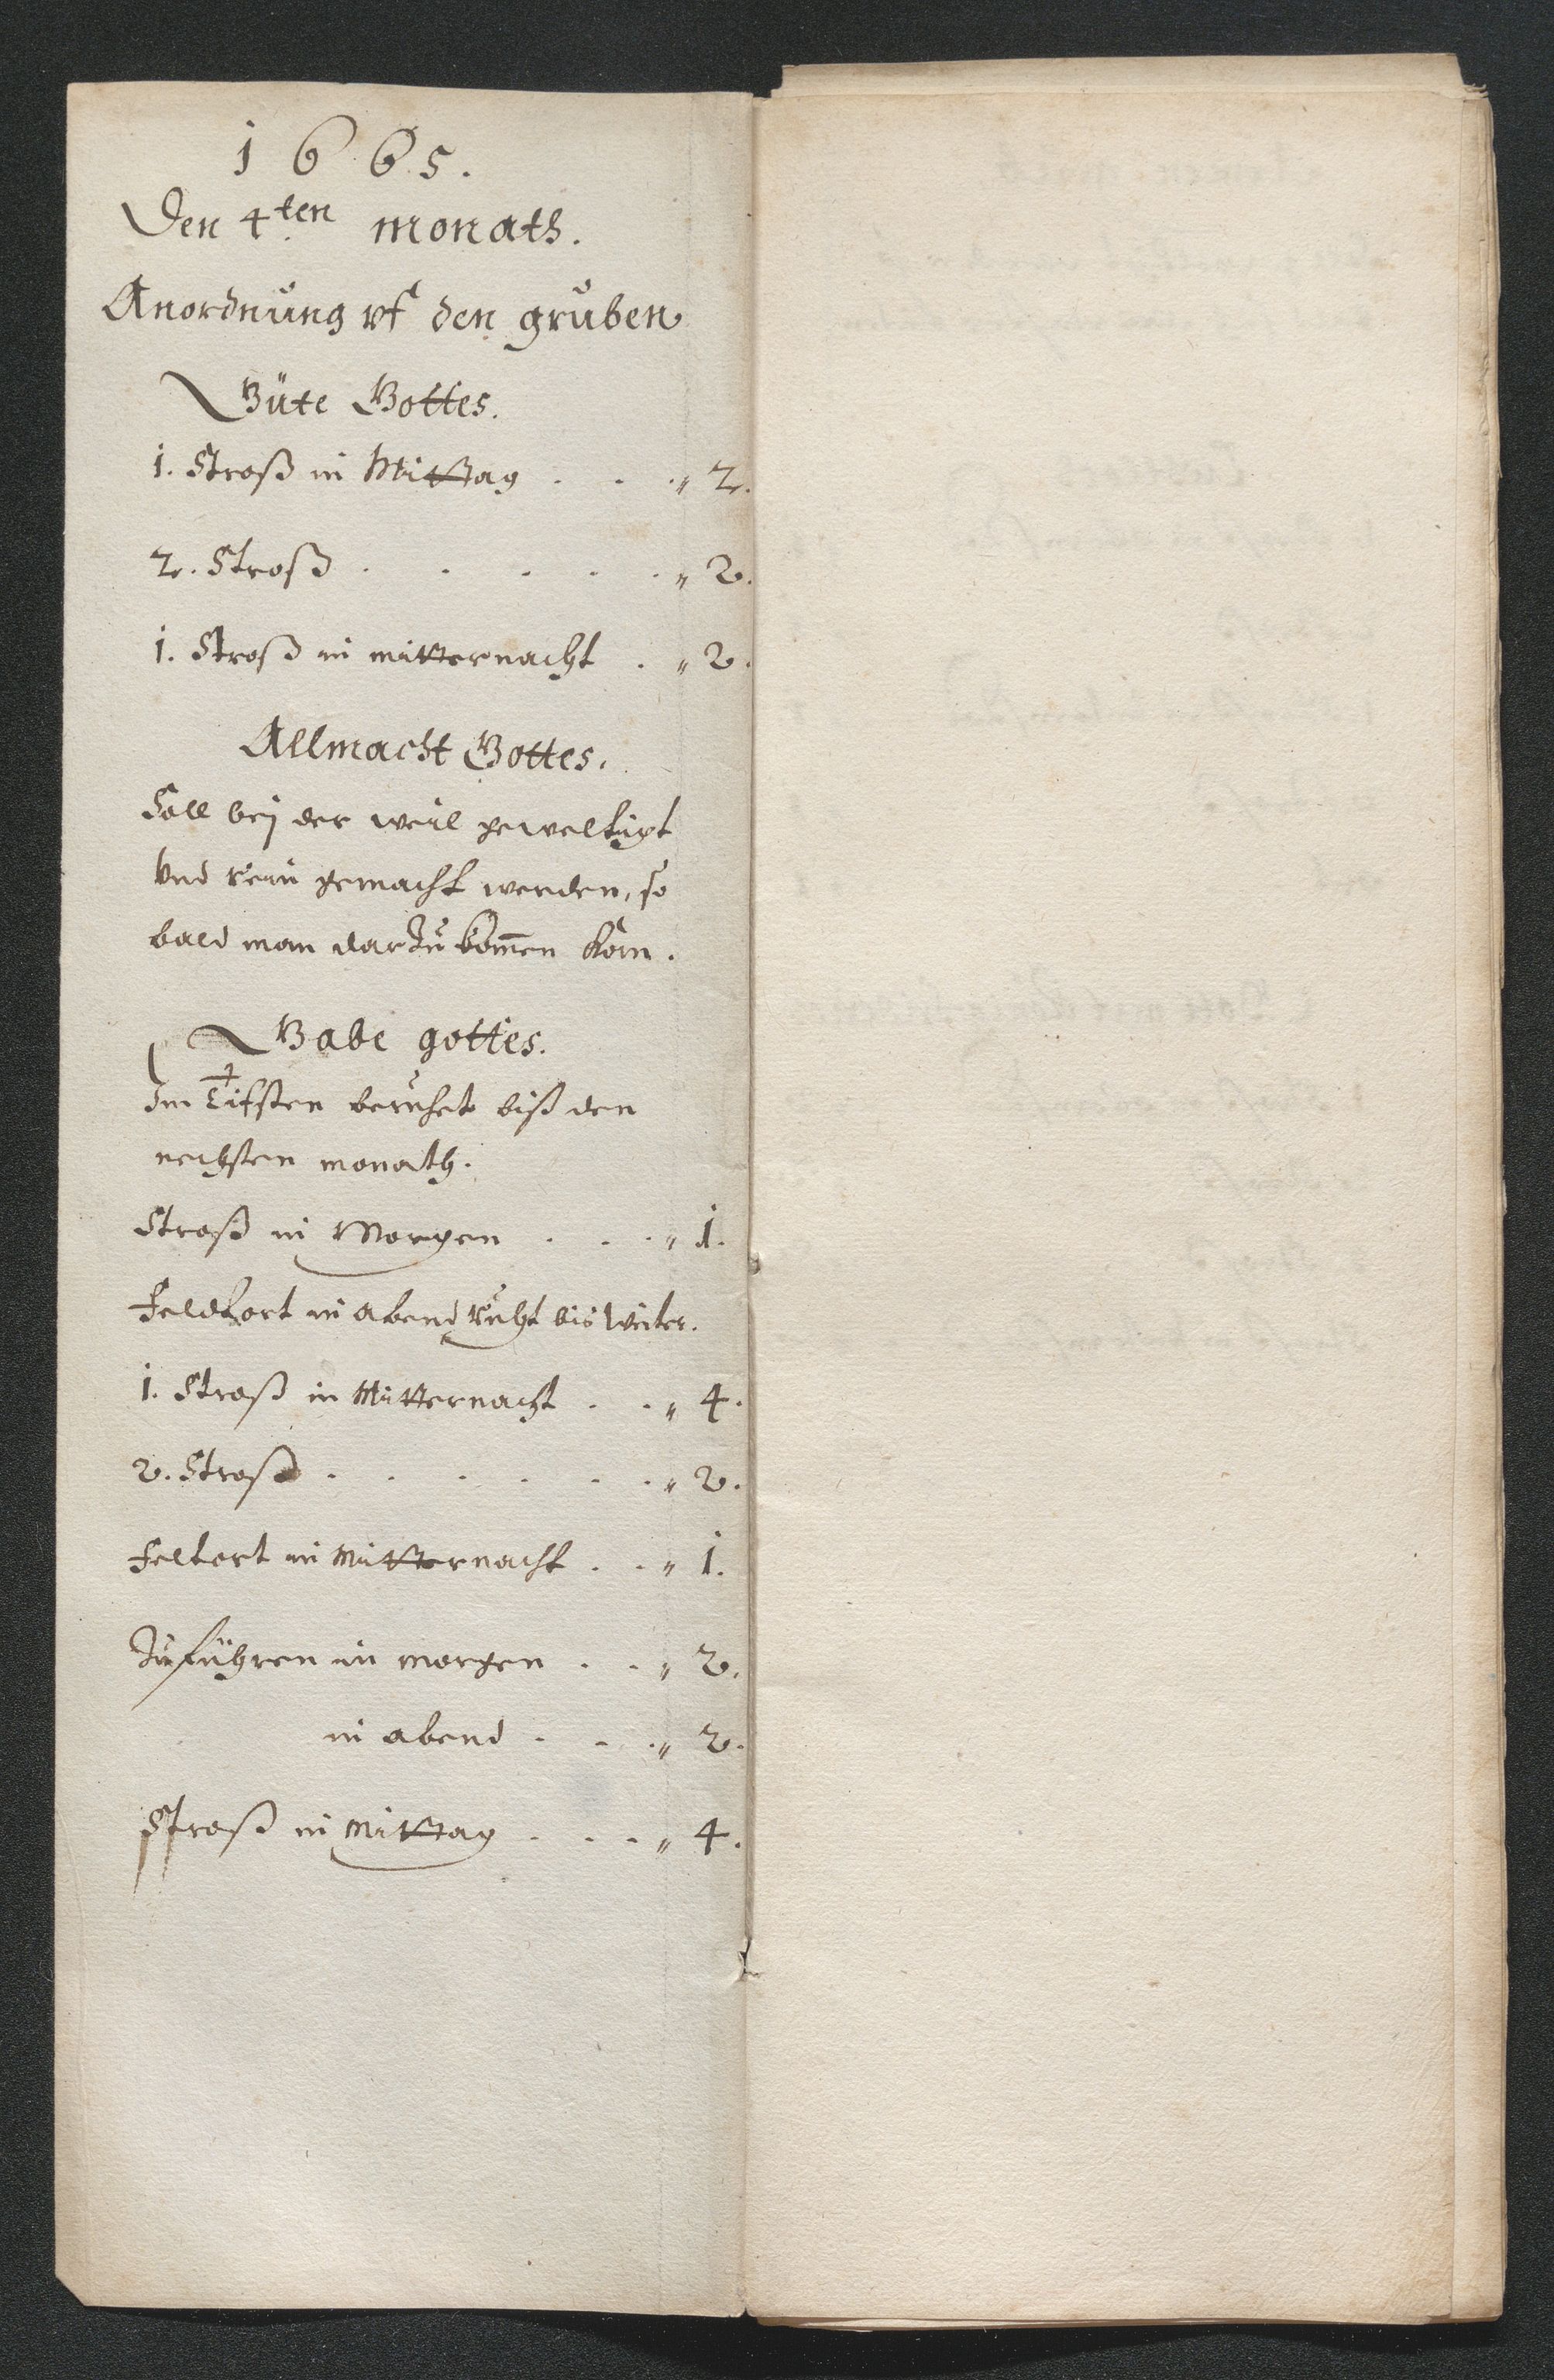 1665.
Den 4ten monath.
Anordnung vf den gruben
Güte Gottes.
1. Stroß in Mittag . . . " 2.
2. Stroß . . . . . " 2.
1. Stroß in mitternacht . " 2.
Allmacht Gottes.
Soll beÿ der weil geweltigt
Vnd rein gemacht werden, so
bald man darzu kom̅en kan.
Gabe gottes.
Im Tifsten beruhet biß den
nechsten monath.
Stroß in Morgen . . . " 1.
Feldtort in abend ruht bis weiter.
1. Stroß in Mitternacht . . " 4.
2. Stroß . . . . . . " 2.
Feltort in Mitternacht . . " 1.
Zuführen in morgen . . " 2.
in abend . . . " 2.
Stroß in Mittag . . . " 4.